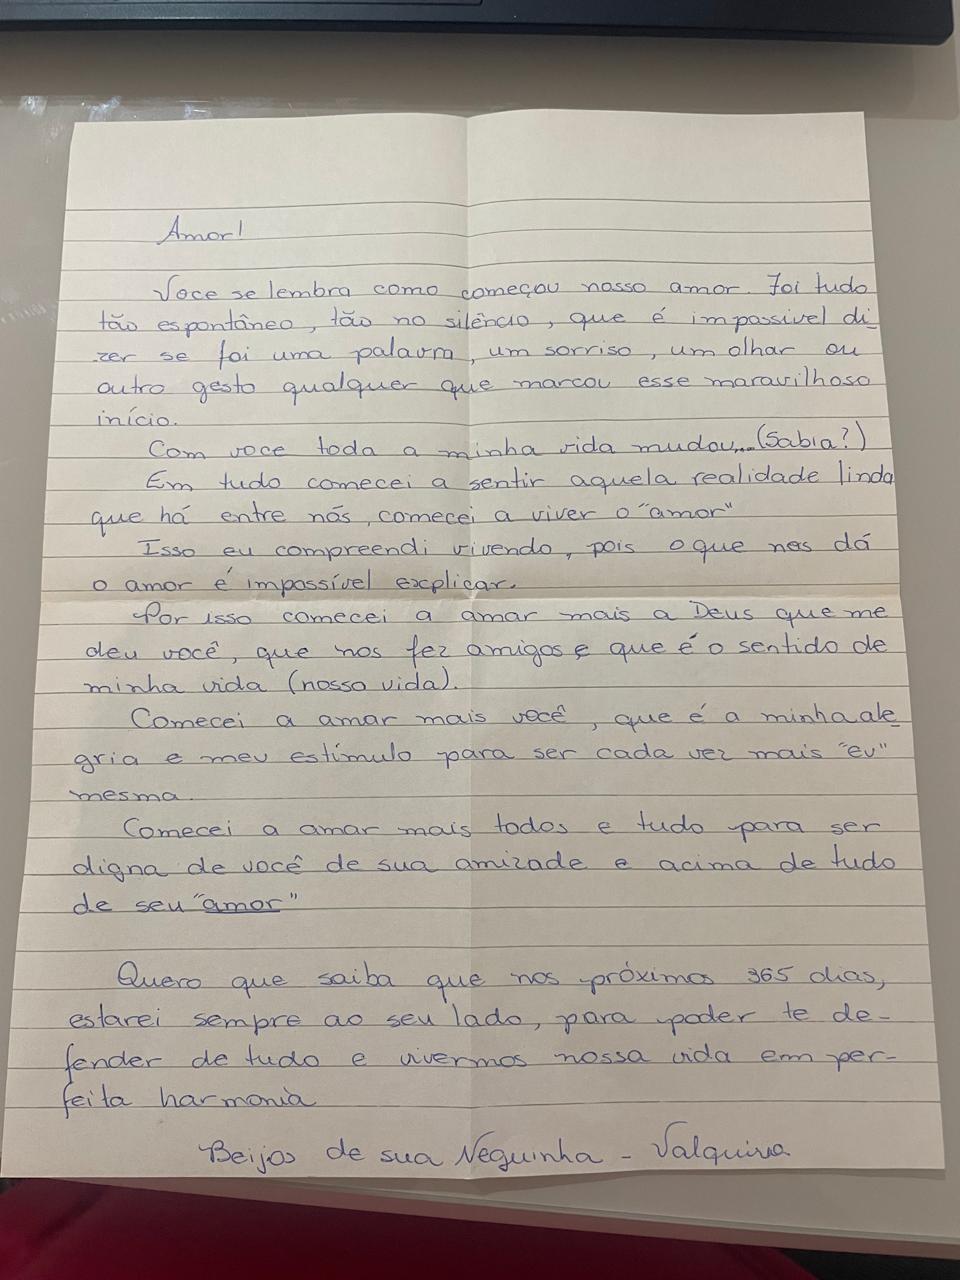 Amor!
Voce se lembra como começou nosso amor. Foi tudo
tão espontâneo, tão no silêncio, que é impossivel di-
zer se foi uma palavra, um sorriso, um olhar ou
outro gesto qualquer que marcou esse maravilhoso
início.
Com voce toda a minha vida mudou... (Sabia?)
Em tudo comecei a sentir aquela realidade linda
que há entre nós, comecei a viver o "amor"
Isso eu compreendi vivendo, pois o que nos dá
o amor é impossível explicar.
Por isso comecei a amar mais a Deus que me
deu você, que nos fez amigos e que é o sentido de
minha vida (nossa vida).
Comecei a amar mais você, que é a minha ale
gria e meu estímulo para ser cada vez mais "eu"
mesma.
Comecei a amar mais todos e tudo para ser
digna de você de sua amizade e acima de tudo
de seu "amor"
Quero que saiba que nos próximos 365 dias,
estarei sempre ao seu lado, para poder te de-
fender de tudo e vivermos nossa vida em per-
feita harmonia
Beijos de sua Neguinha - Valquiria